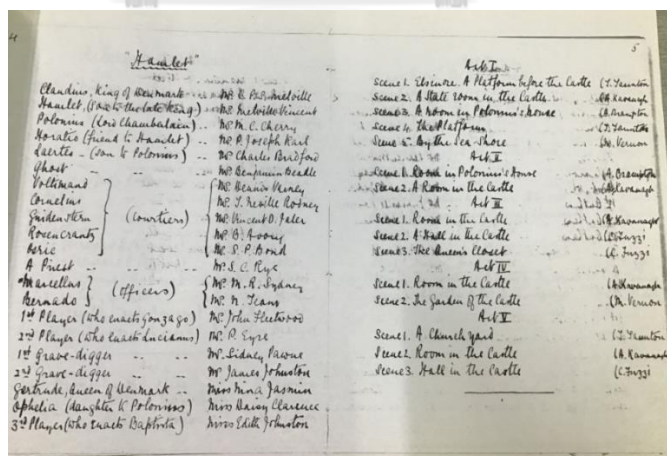 "Hamlet"
Claudius, King of Denmark .. Mr.
Hamlet, (Son to the late King) .. Mr. Melville Vincent
Polonius (Lord Chamberlain) .. Mr. M. C. Cherry
Horatio (friend to Hamlet) .. Mr. P. Joseph Karl
Laertes - (Son to Polonius) .. Mr. Charles Bradford
Ghost .. Mr. Benjamin Beadle
Voltimand Mr. Dennis
Cornelius Mr. J. Neville Rodney
Guildenstern (Courtiers) Mr. Vincent D.
Rosencrantz Mr. B.
Osric Mr. S. P. Bond
A Priest .. .. .. Mr. S. C. Rye
Marcellus (Officers) Mr. M. R. Sydney
Bernado Mr. N. Jeans
1st Player (who enacts Gonzago) Mr. John Fleetwood
2nd Player (who enacts Lucianus) Mr. P. Eyre
1st Grave-digger .. .. Mr. Sidney Pawne
2nd Grave-digger .. .. Mr. James Johnston
Gertrude, Queen of Denmark .. Miss Nina Jasmin
Ophelia (daughter to Polonius) Miss Daisy Clarence
3rd Player (who enacts Baptista) Miss Edith Johnston
5
Act I
Scene 1. Elsinore. A Platform before the Castle (J. Taunton
Scene 2. A State room in the Castle (A. Kavanagh
Scene 3. A Room in Polonius's House (A. Brampton
Scene 4. The Platform (J. Taunton
Scene 5. By the Sea-Shore (M. Vernon
Act II
Scene 1. Room in Polonius's House (A. Brampton
Scene 2. A Room in the Castle (A. Kavanagh
Act III
Scene 1. Room in the Castle (A. Kavanagh
Scene 2. A Hall in the Castle (C. Fuzzi
Scene 3. The Queen's Closet (C. Fuzzi
Act IV
Scene 1. Room in the Castle (A. Kavanagh
Scene 2. The Garden of the Castle (M. Vernon
Act V
Scene 1. A Church Yard (J. Taunton
Scene 2. Room in the Castle (A. Kavanagh
Scene 3. Hall in the Castle (C. Fuzzi